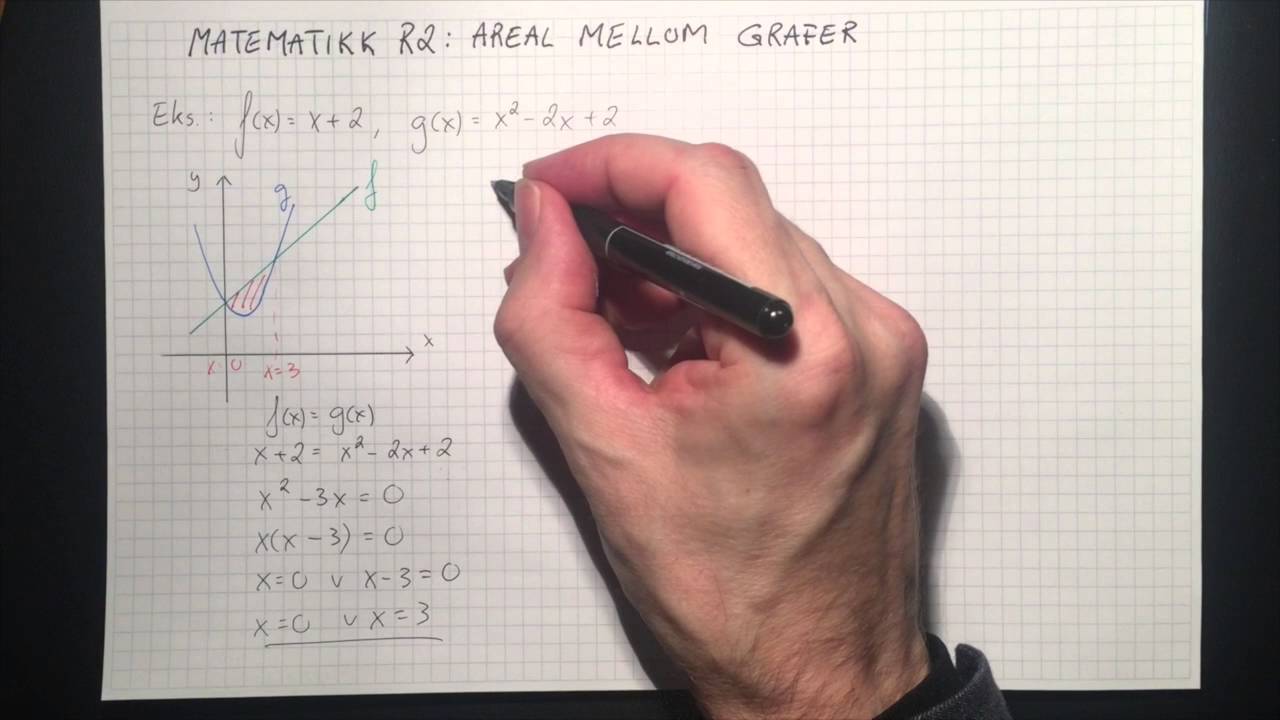 MATEMATIKK R2: AREAL MELLOM GRAFER
Eks.: f(x) = x + 2, g(x) = x² - 2x + 2
y
g
f
x
x 0
x = 3
f(x) = g(x)
x + 2 = x² - 2x + 2
x² - 3x = 0
x(x - 3) = 0
x = 0 v x - 3 = 0
x = 0 v x = 3